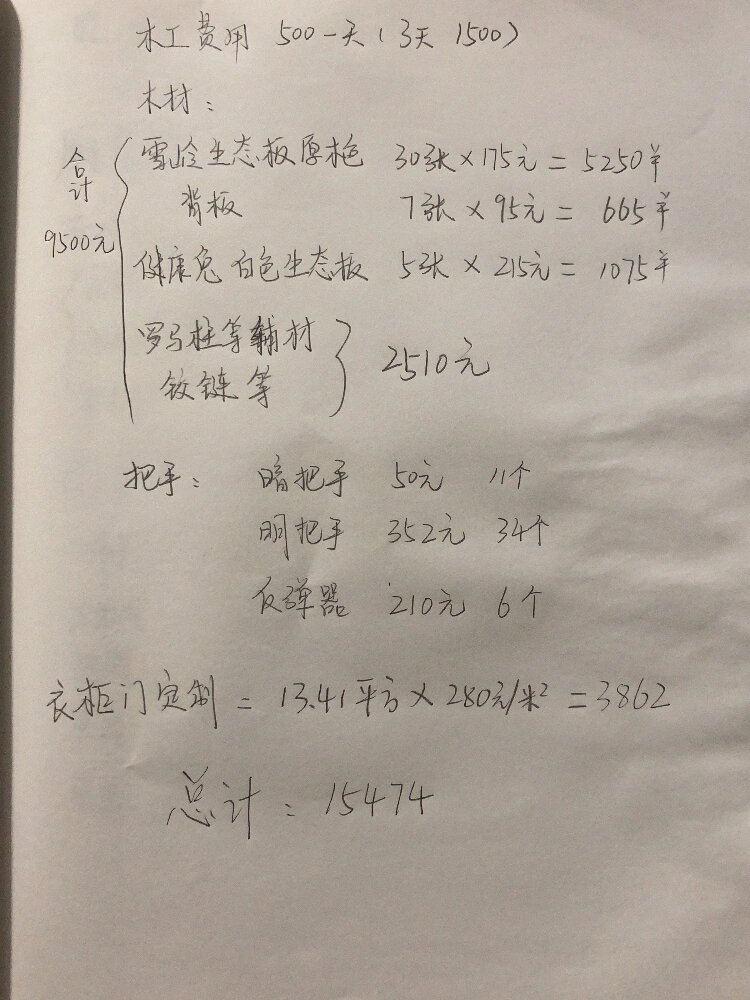 木工费用 500一天（3天 1500）
木材：
合计 9500元
雪岭生态板原色 30张×175元=5250¥
背板 7张×95元=665¥
健康兔 白色生态板 5张×215元=1075¥
罗马柱等辅材
铰链等
2510元
把手： 暗把手 50元 11个
明把手 352元 34个
反弹器 210元 6个
衣柜门定制=13.41平方×280元/米²=3862
总计：15474